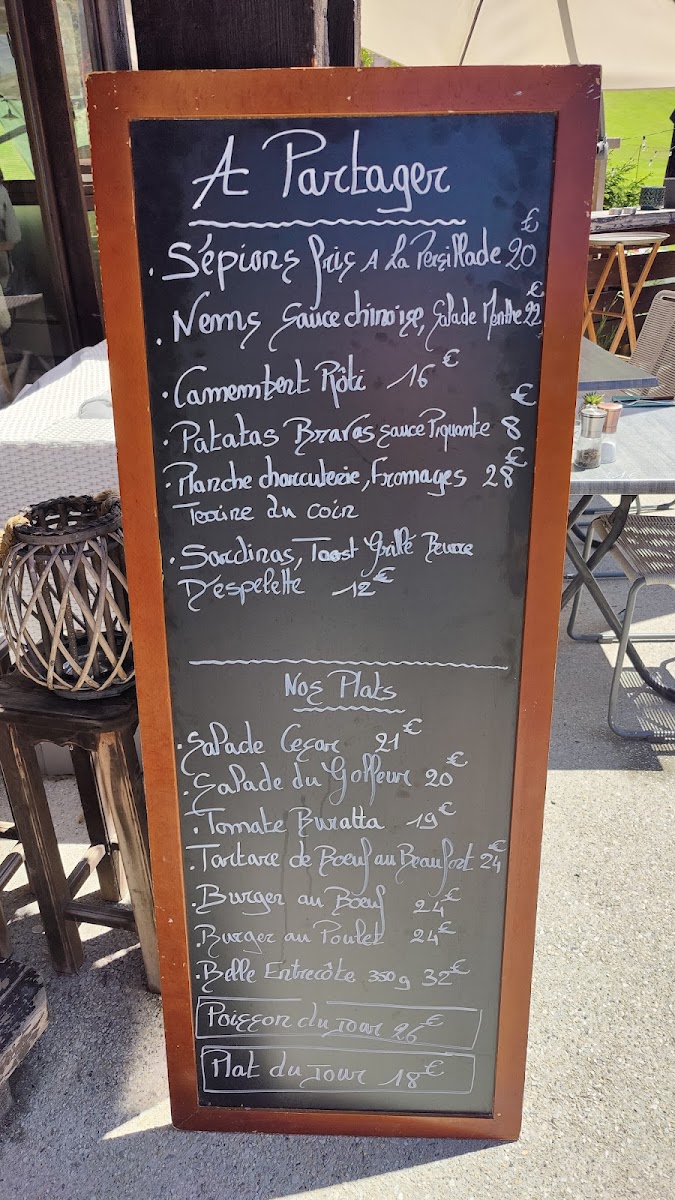 A Partager
. Sépions fris A La Persillade 20 €
. Nems Sauce chinoise, Salade Menthe 22 €
. Camembert Rôti 16 €
. Patatas Bravas sauce Piquante 8 €
. Planche charcuterie, Fromages 28 €
Terrine du coin
. Sardinas, Toast Grillé Beurre
D'espelette 12 €
Nos Plats
. Salade Cesar 21 €
. Salade du Golfeur 20 €
. Tomate Buratta 19 €
. Tartare de Boeuf au Beaufort 24 €
. Burger au Boeuf 24 €
. Burger au Poulet 24 €
. Belle Entrecôte 350 g 32 €
Poisson du jour 26 €
Plat du Jour 18 €